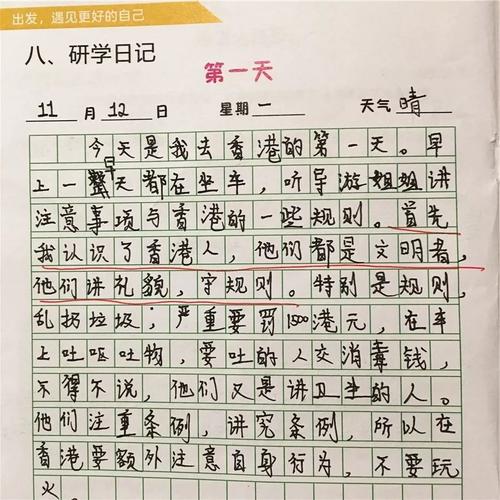 出发，遇见更好的自己
八、研学日记
第一天
11月12日 星期一 天气晴
今天是我去香港的第一天。早
上一早天都在坐车，听导游姐姐讲
注意事项与香港的一些规则。首先
我认识了香港人，他们都是文明者，
他们讲礼貌，守规则。特别是规则，
乱扔垃圾；严重要罚1500港元，在车
上吐呕吐物，要吐的人交消毒钱，
不得不说，他们又是讲卫生的人。
他们注重条例，讲究条例，所以在
香港要额外注意自身行为，不要玩
火。